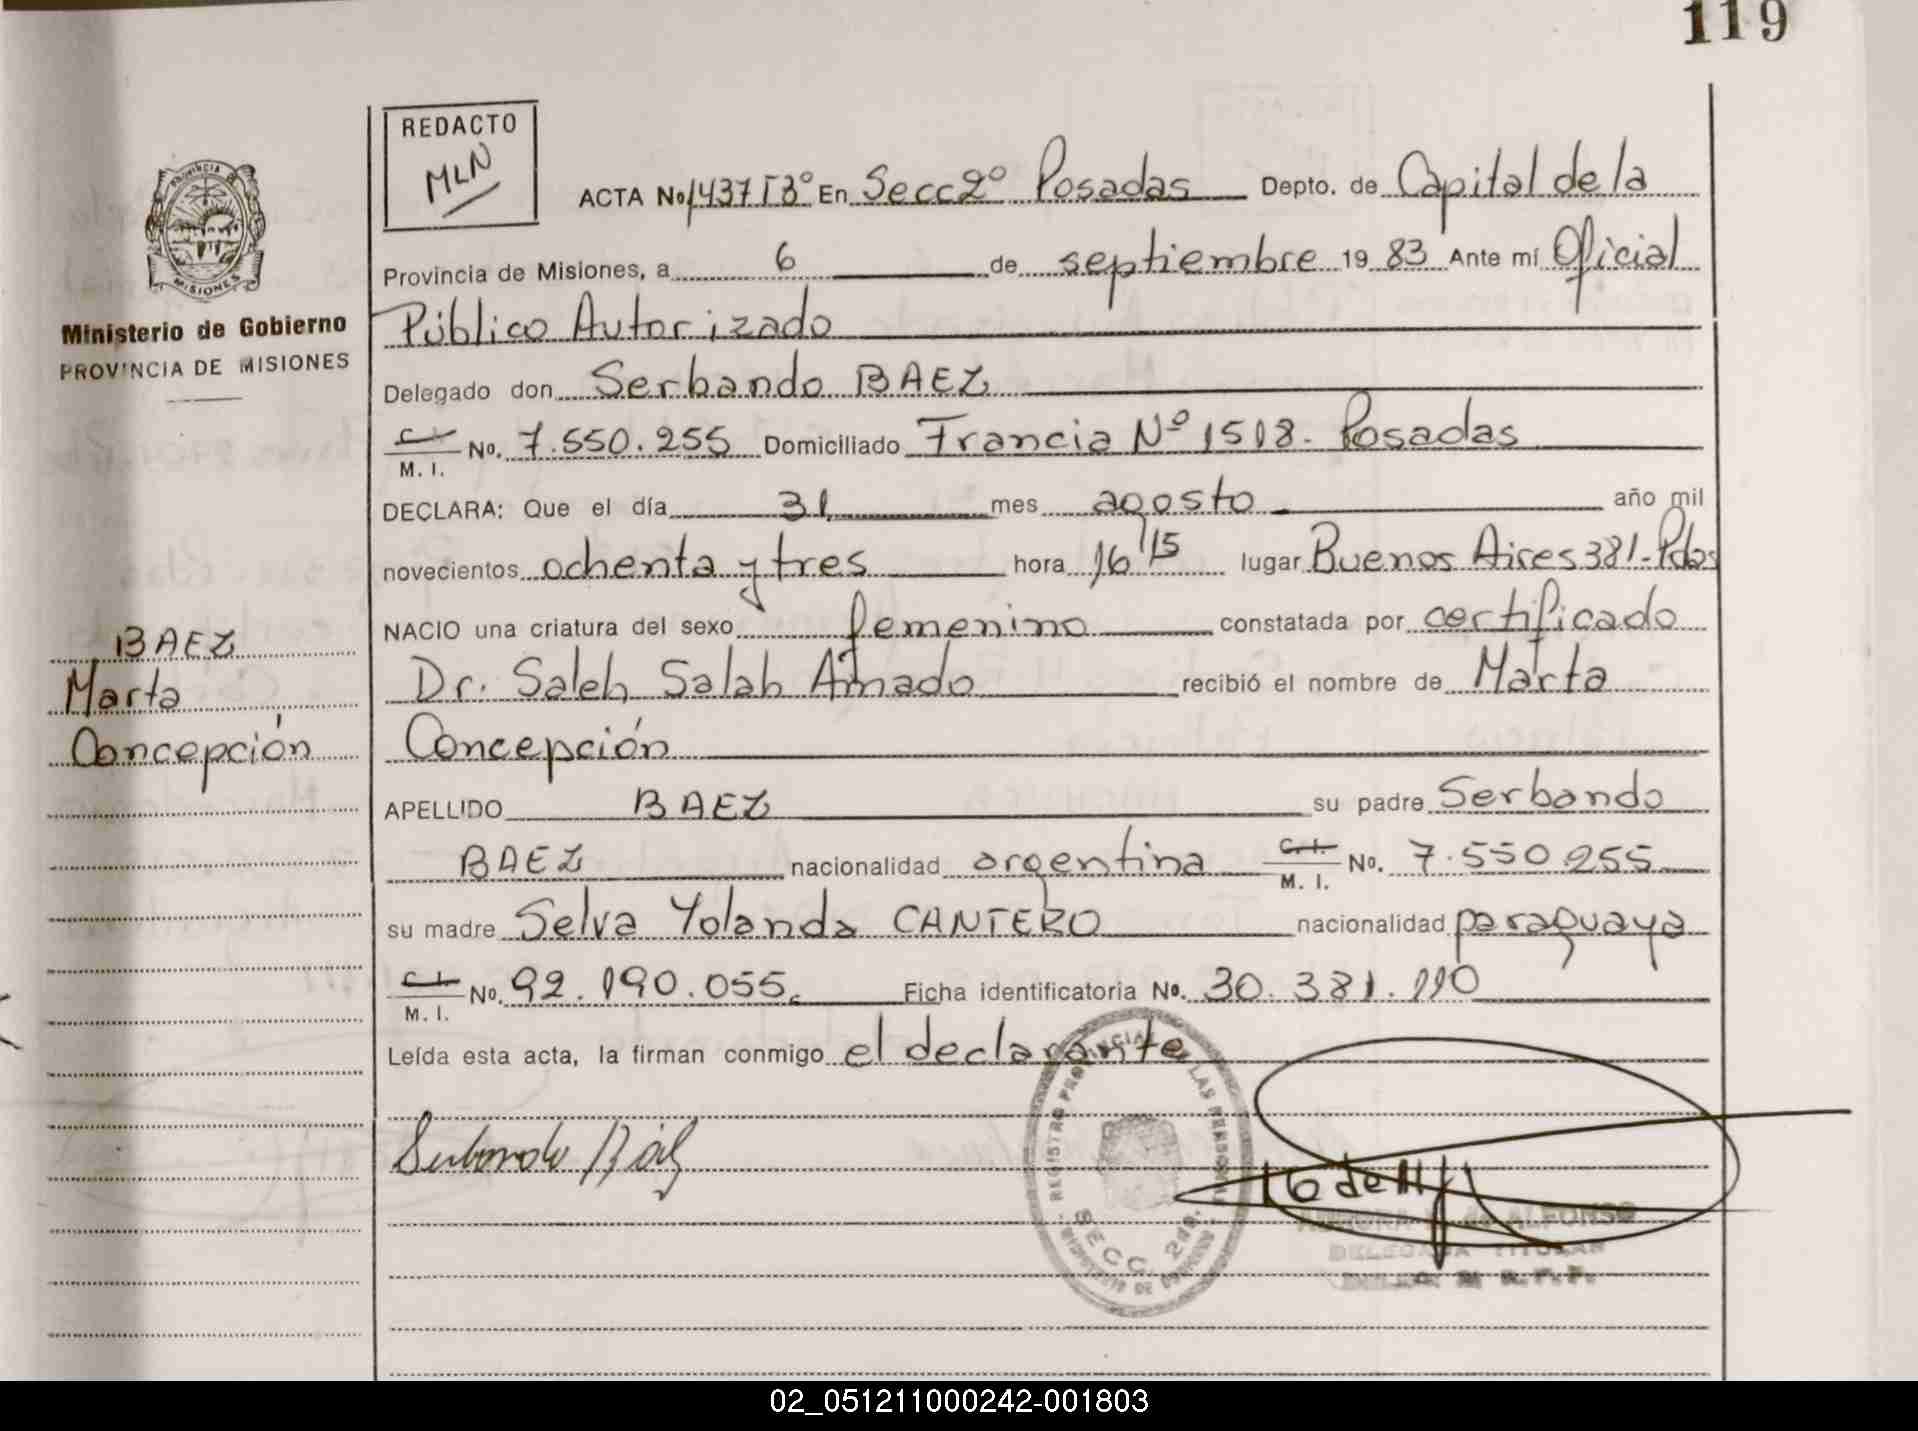 119
REDACTO
MLN
ACTA No 1437 T3° En Secc 2° Posadas Depto. de Capital de la
PROVINCIA D
MISIONES
Provincia de Misiones, a 6 de septiembre 19 83 Ante mí Oficial
Ministerio de Gobierno
PROVINCIA DE MISIONES
Público Autorizado
Delegado don Serbando BAEZ
C.I.
M. I. No. 7.550.255 Domiciliado Francia Nº 1518. Posadas
DECLARA: Que el día 31 mes agosto año mil
novecientos ochenta y tres hora 16 15 lugar Buenos Aires 381-Pdas
NACIO una criatura del sexo femenino constatada por certificado
BAEZ
Marta
Concepción
Dr. Saleh Salah Amado recibió el nombre de Marta
Concepción
APELLIDO BAEZ su padre Serbando
BAEZ nacionalidad argentina C.I. M. I. No. 7.550.255
su madre Selva Yolanda CANTERO nacionalidad paraguaya
C.I.
M. I. No. 92.190.055. Ficha identificatoria No. 30.381.110
Leída esta acta, la firman conmigo el declarante
Serbando Báez
REGISTRO PROVINCIAL DE LAS PERSONAS
SECC. 2da.
MINISTERIO DE GOBIERNO
de ALFONSO
DELEGADA TITULAR
02_051211000242-001803